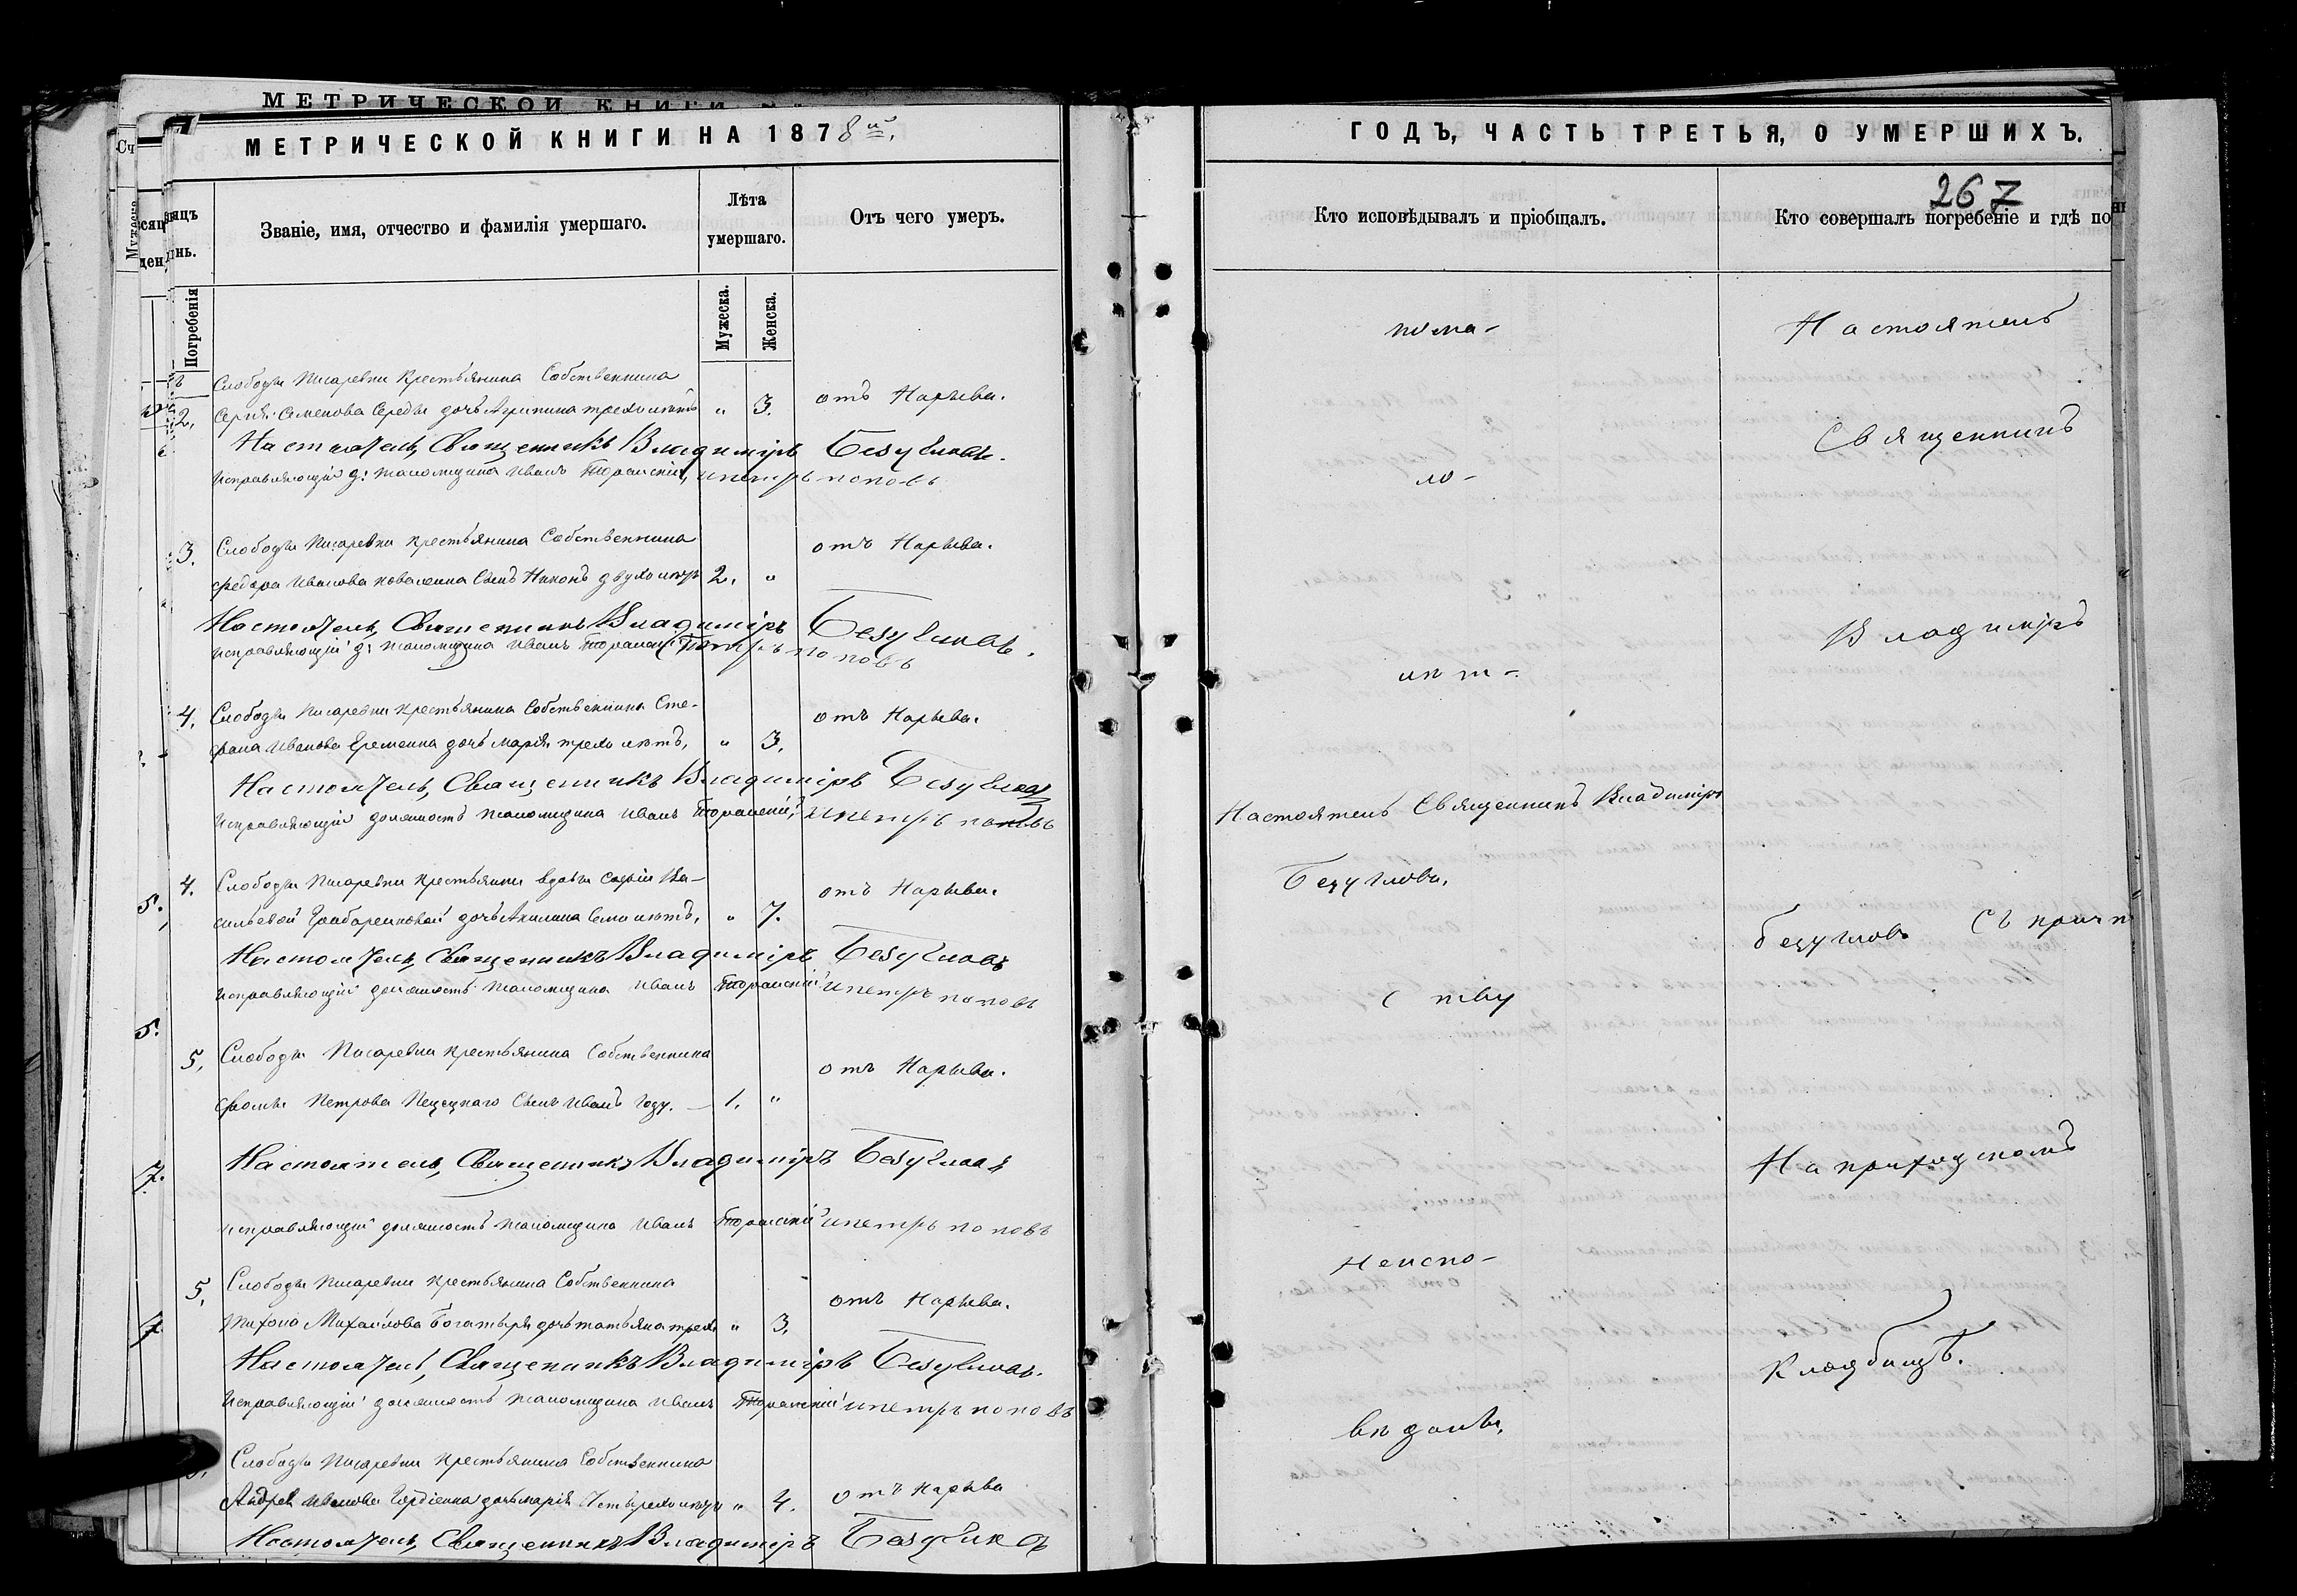 МЕТРИЧЕСКОЙ КНИГИ
МЕТРИЧЕСКОЙ КНИГИ НА 1878й.
Званіе, имя, отчество и фамилія умершаго.
Лѣта умершаго.
Отъ чего умеръ.
Погребенія
Мужеска.
Женска.
Слободы Писаревки крестьянина Собственника
2, Сергія Семенова Середы дочь Агрипина трехъ лѣтъ " 3. отъ Нарыва.
Настоятель, Священникъ Владиміръ Безугловъ.
Исправляющій д: Псаломщика Иванъ и Петръ Поповъ
3. Слободы Писаревки крестьянина Собственника отъ Нарыва.
Федора Иванова Коваленка Сынъ Никонъ двухъ лѣтъ 2. "
Настоятель, Священникъ Владиміръ Безугловъ.
Исправляющій д: Псаломщика Иванъ Петръ Поповъ
4. Слободы Писаревки крестьянина Собственника Сте- отъ Нарыва.
фана Иванова Еременка дочь Марія трехъ лѣтъ, " 3.
Настоятель, Священникъ Владиміръ Безугловъ
Исправляющій должность Псаломщика Иванъ и Петръ Поповъ
4. Слободы Писаревки крестьянки вдовы Софіи Ва- отъ Нарыва.
сильевой дочь Акилина Семи лѣтъ, " 7.
Настоятель, Священникъ Владиміръ Безугловъ
Исправляющій должность Псаломщика Иванъ и Петръ Поповъ
5, Слободы Писаревки крестьянина Собственника отъ Нарыва.
Фомы Петрова Сынъ Иванъ Году. 1. "
Настоятель, Священникъ Владиміръ Безугловъ
Исправляющій должность Псаломщика Иванъ и Петръ Поповъ
5, Слободы Писаревки крестьянина Собственника отъ Нарыва.
Тихона Михайлова Богатыря дочь Татьяна трехъ " 3.
Настоятель, Священникъ Владиміръ Безугловъ.
Исправляющій должность Псаломщика Иванъ и Петръ Поповъ
Слободы Писаревки крестьянина Собственника
Андрея Иванова Гордіенка дочь Марія Четырехъ лѣтъ " 4. отъ Нарыва
Настоятель, Священникъ Владиміръ Безугловъ
ГОДЪ, ЧАСТЬ ТРЕТЬЯ, О УМЕРШИХЪ.
267
Кто исповѣдывалъ и пріобщалъ.
Кто совершалъ погребеніе и гдѣ по
по ма-
ло-
лѣт-
Настоятель Священникъ Владиміръ
Безугловъ.
ству
Неиспо-
вѣданы,
Настоятель
Священникъ
Владиміръ
Безугловъ Съ причт
На приходскомъ
Кладбищѣ.